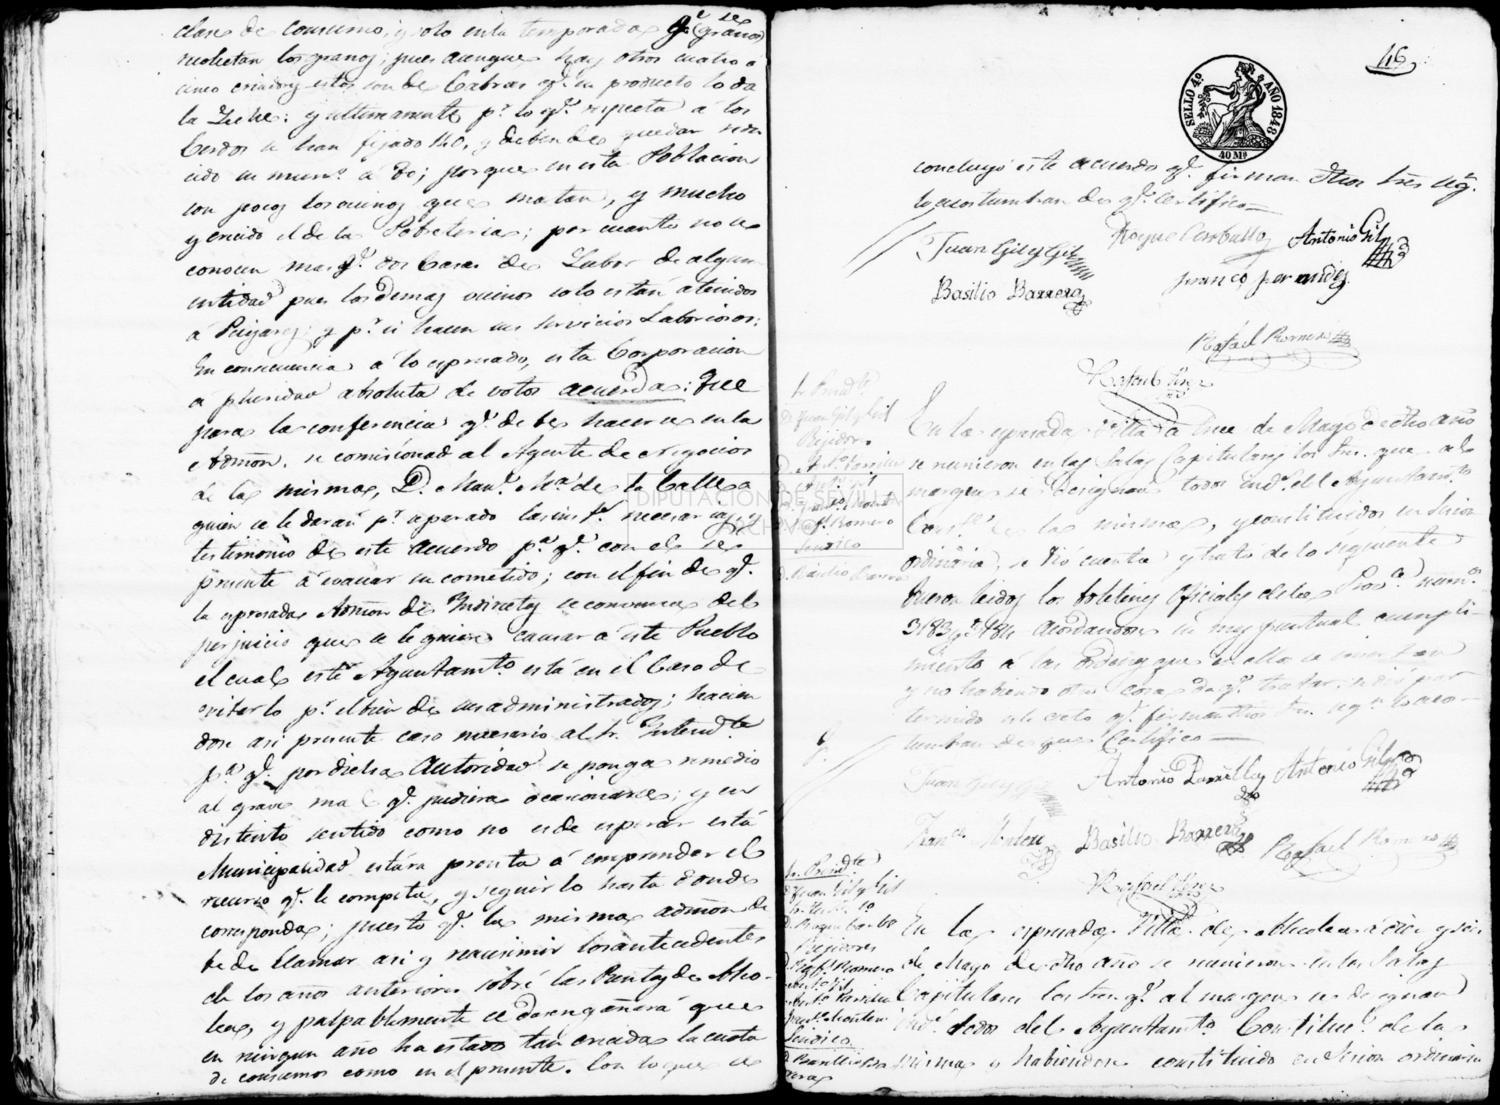 clase de consumo, y solo en la temporada qe se (granos)
recolectan los granos; pues aunque hay otros cuatro ó
cinco criadores estos son de Cabras qe su producto lo da
la Leche: y ultimamente pr lo qe respecta á los
Cerdos se han fijado 140, y deben de quedar redu
cido su numo á 80; porque en esta Poblacion
son pocos los vecinos que matan, y mucho
y crecido el de la Pobreteria; por cuanto no se
conocen mas qe dos Casas de Labor de algun
entidad pues los demas vecinos solo están atenidos
á Peujares; y pr si hacen sus servicios Laboriosos:
En consecuencia a lo espresado, esta Corporacion
a pluridad absoluta de votos acuerda: Que
para la conferencia qe debe hacerse en la
Admon. se comisiona al Agente de Negocios
de la misma, D. Manl Ma de la Calle a
quien se le darán pr separado las instrs necesarias y
testimonio de este acuerdo pa qe con él se
presente á evacuar su cometido; con el fin de qe
la espresada Admon de Indirectas se convenza del
perjuicio que se le quiere causar á este Pueblo
el cual este Ayuntamto está en el Caso de
evitarlo pr el bien de sus administrados; hacien
dose asi presente caso necesario al Sr Intendte
pa qe por dicha Autoridad se ponga remedio
al grave mal qe pudiera ocasionarse; y en
distinto sentido como no es de esperar está
Municipalidad estára pronta á emprender el
recurso qe le competa, y seguirlo hasta donde
corresponda; puesto qe la misma admon de
be de llamar asi y reasumir los antecedentes
de los años anteriores sobre las Rentas de Alco-
lea, y palpablemente se desengañará que
en ningun año ha estado tan crecida la cuota
de consumos como en el presente. Con lo que se
46
SELLO 4º AÑO 1848
40 Ms
concluyó este acuerdo qe firman dhos Sres segn
lo acostumbran de qe certifico
Juan Gil y Gil
Roque Carballo
Antonio Gil
Basilio Barrera
Franco Fernandez
Rafael Romero
Sr Presidte
D. Juan Gil y Gil
Rejidores
Romero
Sindico
D. Basilio Barrera
En la espresada Villa á trece de Mayo de dho año
se reunieron en las Salas Capitulares los Sres que al
margen se designan todos indos del Ayuntamto
Constl de la misma, y constituidos en Sesion
ordinaria, se dio cuenta y trató de lo siguiente
Fueron leidos los boletines Oficiales de la Proa numos
3183 y 3184 acordandose su mas puntual cumpli-
miento á las ordenes que en ellos se insertan
y no habiendo otra cosa de qe tratar, se dio por
terminado este acto qe firman dhos Sres segn lo acos-
tumbran de que Certifico
Juan Gil y Gil
Antonio Parrilla
Antonio Gil
Franco Montero
Basilio Barrera
Rafael Romero
Sr Presidte
D. Juan Gil y Gil
D. Roque Carballo
Rejidores
D. Rafl Romero
Anto Gil
Anto Parrilla
Franco Montero
Sindico
D. Basilio Ba
rrera
En la espresada Villa de Alcolea á diez y seis
de Mayo de dho año se reunieron en las Salas
Capitulares los Sres qe al margen se designan
indos todos del Ayuntamto Constitucl de la
misma y habiendose constituido en Sesion ordinaria
DIPUTACIÓN DE SEVILLA
ARCHIVO